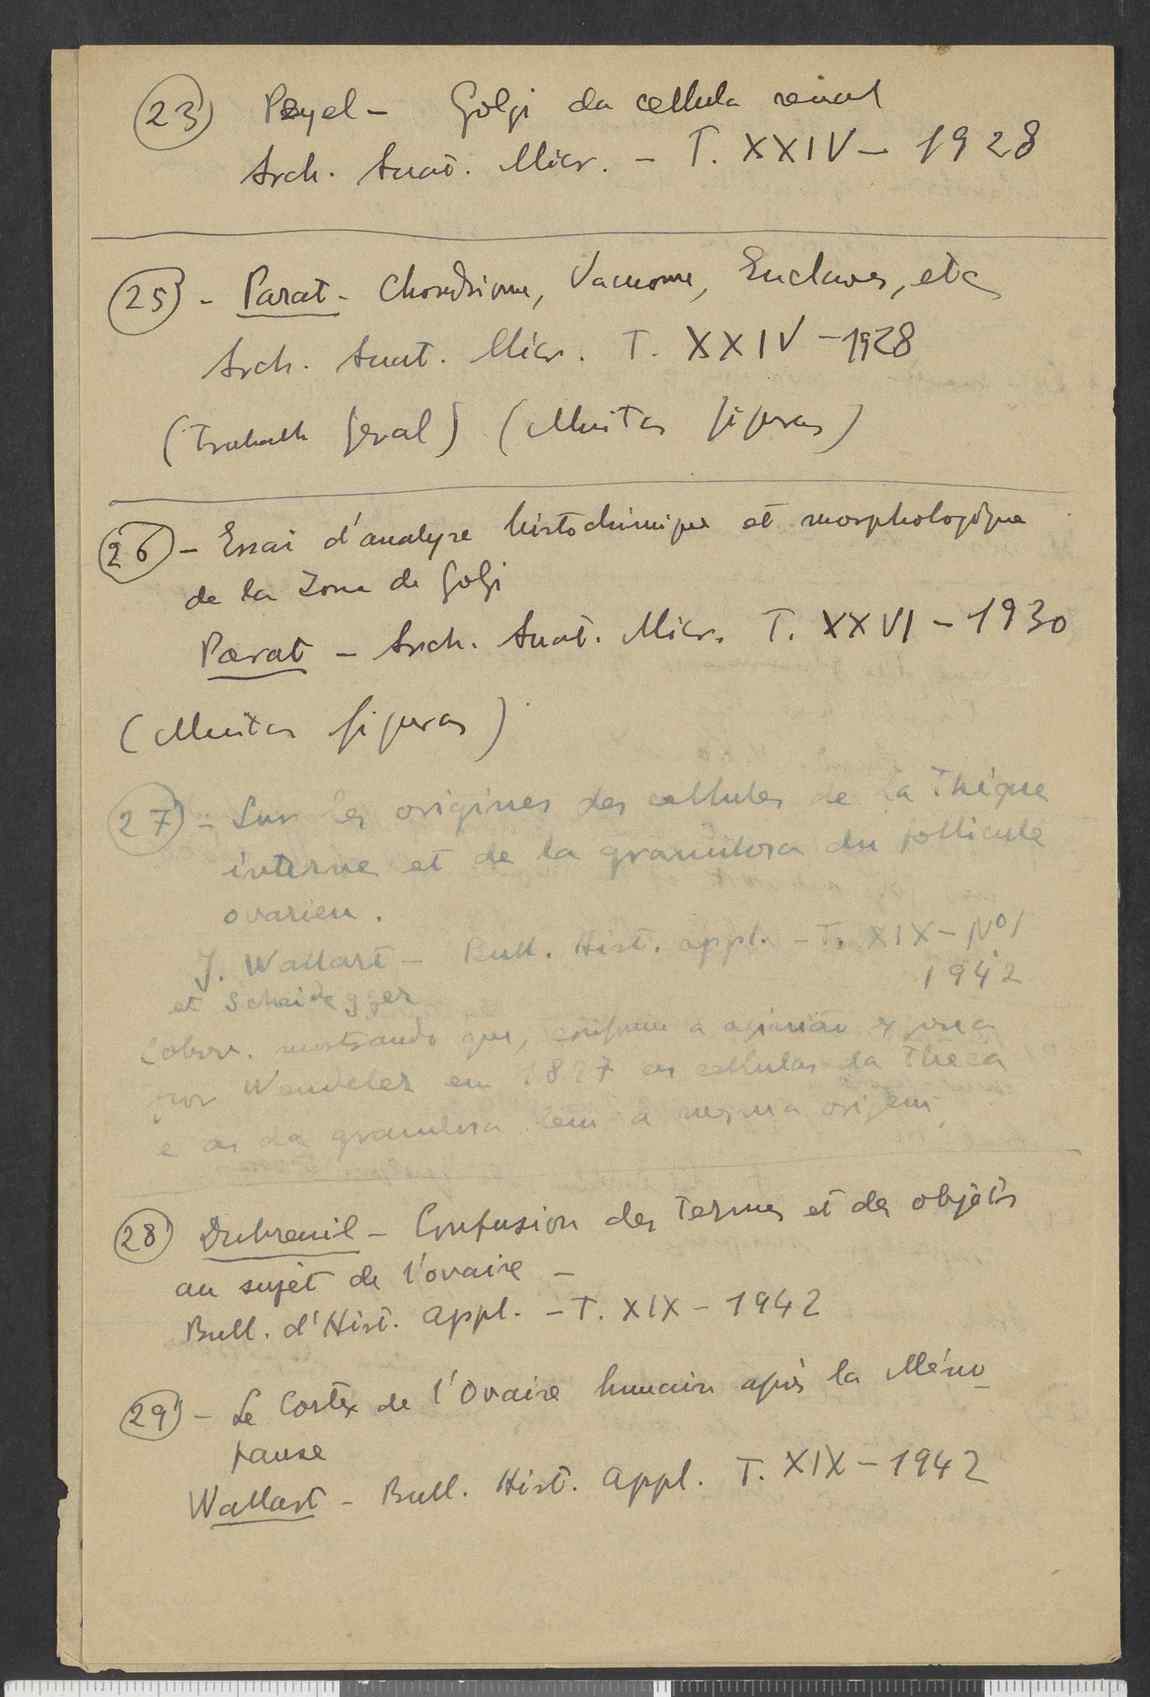 23) Peyel - Golgi da cellula renal
Arch. Anat. Micr. - T. XXIV - 1928
25) - Parat - Chondriome, Vacuome, Enclaves, etc
Arch. Anat. Micr. T. XXIV - 1928
(Trabalh geral) (Muitas figuras)
26) - Essai d'analyse histochimique et morphologique
de la Zone de Golgi
Parat - Arch. Anat. Micr. T. XXVI - 1930
(Muitas figuras)
27) - Sur les origines des cellules de la Thèque
interne et de la granulosa du follicule
ovarien.
J. Wallart - Bull. Hist. appl. - T. XIX - Nº 1
1942
et Scheidegger
(observ. mostrando que, conforme a opinião exposta
por Wendeler em as cellulas da Theca
e as da granulosa tem a mesma origem.
28) Dubreuil - Confusion des Termes et des objets
au sujet de l'ovaire -
Bull. d'Hist. appl. - T. XIX - 1942
29) - Le Cortex de l'Ovaire humain après la Méno_
pause
Wallart - Bull. Hist. appl. T. XIX - 1942